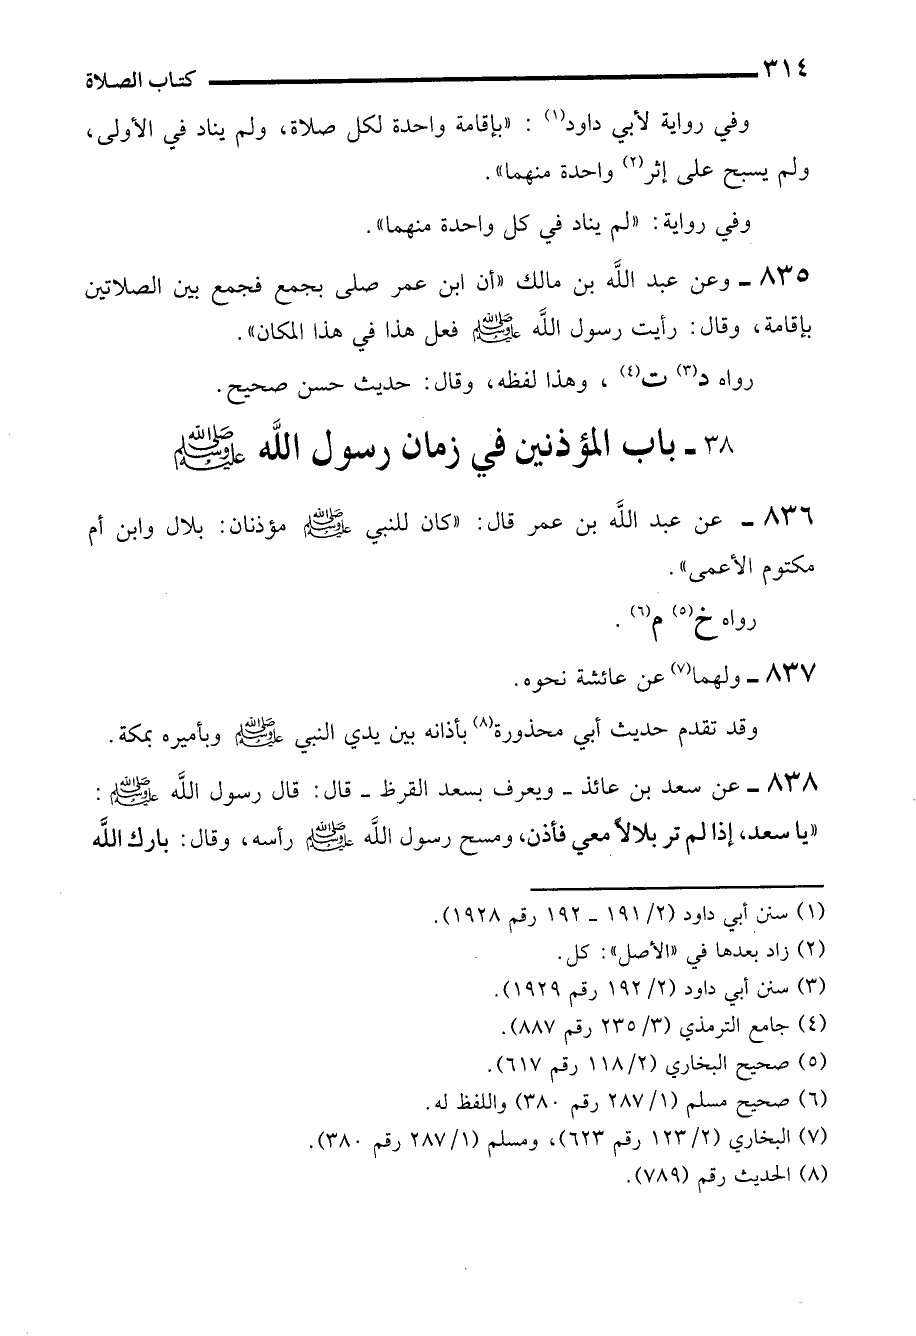 ٣١٤ كتاب الصلاة
وفي رواية لأبي داود(١) : «بإقامة واحدة لكل صلاة، ولم يناد في الأولى،
ولم يسبح على إثر(٢) واحدة منهما».
وفي رواية: «لم يناد في كل واحدة منهما».
٨٣٥ ـ وعن عبد اللَّه بن مالك «أن ابن عمر صلى بجمع فجمع بين الصلاتين
بإقامة، وقال: رأيت رسول اللَّه ﷺ فعل هذا في هذا المكان».
رواه د(٣) ت(٤) ، وهذا لفظه، وقال: حديث حسن صحيح.
٣٨ ـ باب المؤذنين في زمان رسول اللَّه ﷺ
٨٣٦ ـ عن عبد اللَّه بن عمر قال: «كان للنبي ﷺ مؤذنان: بلال وابن أم
مكتوم الأعمى».
رواه خ(٥) م(٦) .
٨٣٧ ـ ولهما(٧) عن عائشة نحوه.
وقد تقدم حديث أبي محذورة(٨) بأذانه بين يدي النبي ﷺ وبأميره بمكة.
٨٣٨ ـ عن سعد بن عائذ ـ ويعرف بسعد القرظ ـ قال: قال رسول اللَّه ﷺ :
«يا سعد، إذا لم تر بلالاً معي فأذن، ومسح رسول اللَّه ﷺ رأسه، وقال: بارك اللَّه
(١) سنن أبي داود (٢/ ١٩١ ـ ١٩٢ رقم ١٩٢٨).
(٢) زاد بعدها في «الأصل»: كل.
(٣) سنن أبي داود (٢/ ١٩٢ رقم ١٩٢٩).
(٤) جامع الترمذي (٣/ ٢٣٥ رقم ٨٨٧).
(٥) صحيح البخاري (٢/ ١١٨ رقم ٦١٧).
(٦) صحيح مسلم (١/ ٢٨٧ رقم ٣٨٠) واللفظ له.
(٧) البخاري (٢/ ١٢٣ رقم ٦٢٣)، ومسلم (١/ ٢٨٧ رقم ٣٨٠).
(٨) الحديث رقم (٧٨٩).